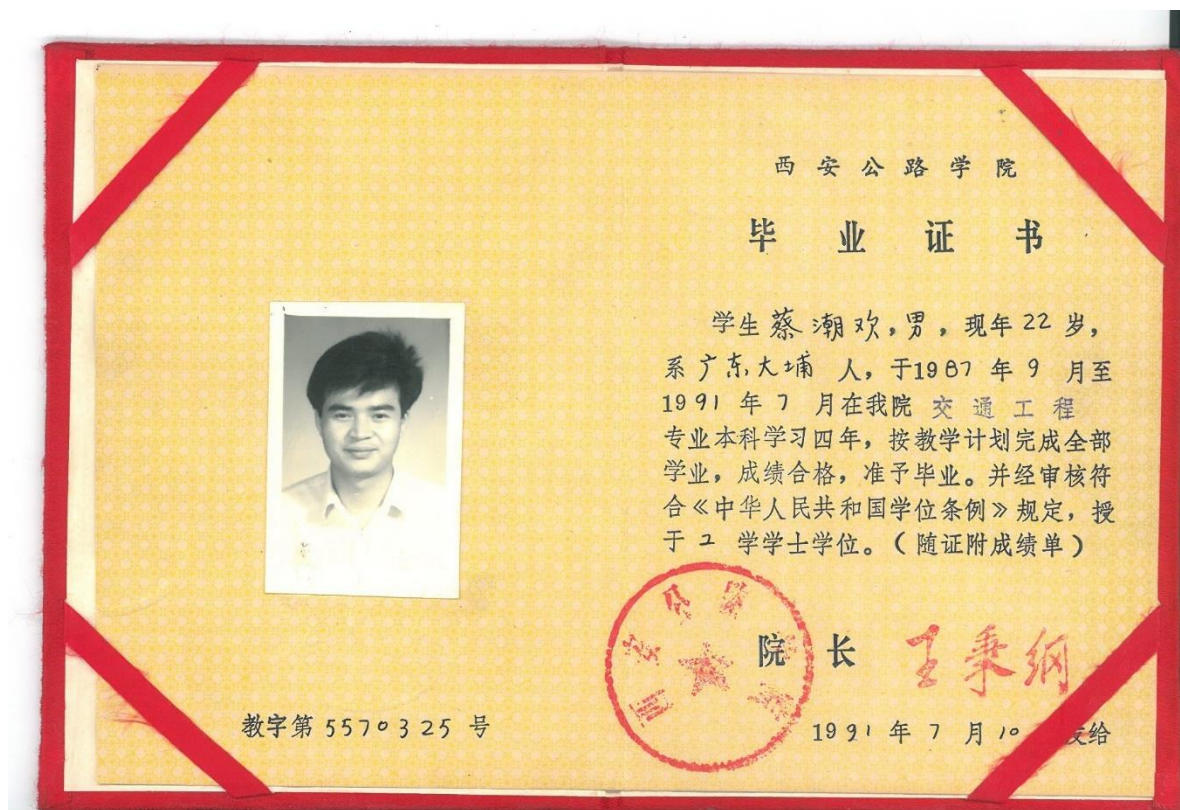 西安公路学院
毕业证书
学生蔡潮欢，男，现年22岁，
系广东大埔人，于1987年9月至
1991年7月在我院交通工程
专业本科学习四年，按教学计划完成全部
学业，成绩合格，准予毕业。并经审核符
合《中华人民共和国学位条例》规定，授
于工学学士学位。（随证附成绩单）
西安公路学院
院长 王秉纲
教字第5570325号
1991年7月10 发给